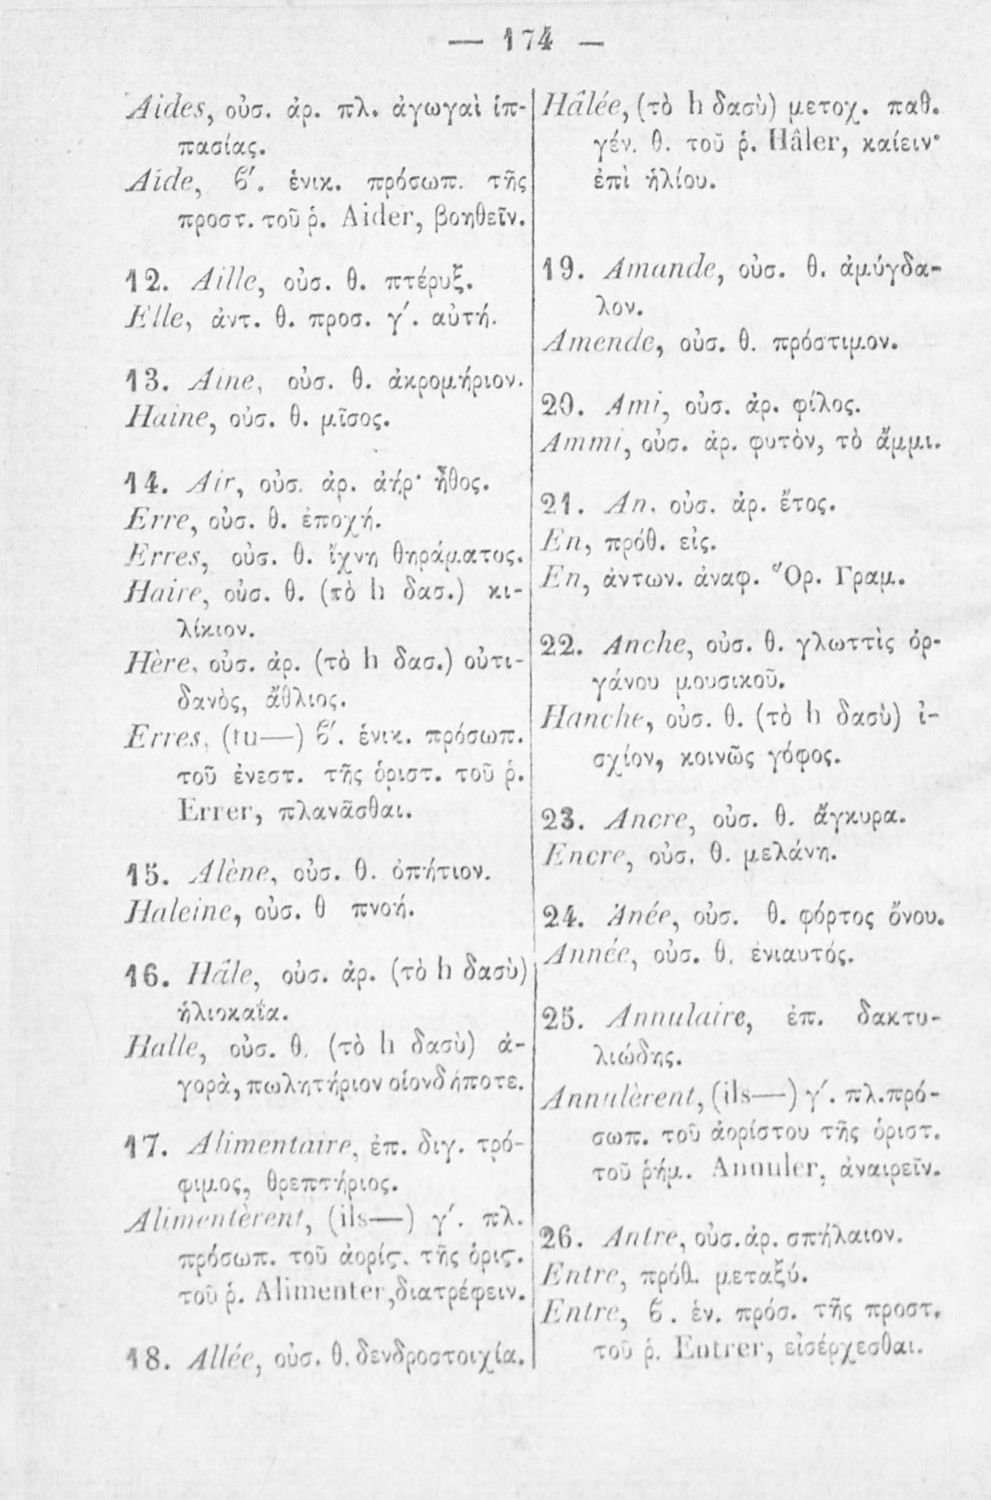 — 174 —
Aides, οὐσ. ἀρ. πλ. ἀγωγαὶ ἱπ-
πασίας.
Aide, ϐ΄. ἑνικ. πρόσωπ. τῆς
προστ. τοῦ ῥ. Aider, βοηθεῖν.
12. Aille, οὐσ. θ. πτέρυξ.
Elle, ἀντ. θ. προσ. γ΄. αὐτή.
13. Aine, οὐσ. θ. ἀκρομήριον.
Haine, οὐσ. θ. μῖσος.
14. Air, οὐσ. ἀρ. ἀήρ· ἦθος.
Erre, οὐσ. θ. ἐποχή.
Erres, οὐσ. θ. ἴχνη θηράματος.
Haire, οὐσ. θ. (τὸ h δασ.) κι-
λίκιον.
Hère, οὐσ. ἀρ. (τὸ h δασ.) οὐτι-
δανὸς, ἄθλιος.
Erres, (tu—) ϐ΄. ἑνικ. πρόσωπ.
τοῦ ἐνεστ. τῆς ὁριστ. τοῦ ῥ.
Errer, πλανᾶσθαι.
15. Alène, οὐσ. θ. ὀπήτιον.
Haleine, οὐσ. θ πνοή.
16. Hâle, οὐσ. ἀρ. (τὸ h δασὺ)
ἡλιοκαΐα.
Halle, οὐσ. θ. (τὸ h δασὺ) ἀ-
γορὰ, πωλητήριον οἱονδήποτε.
17. Alimentaire, ἐπ. διγ. τρό-
φιμος, θρεπτήριος.
Alimentèrent, (ils—) γ΄. πλ.
πρόσωπ. τοῦ ἀορίς. τῆς ὁρις.
τοῦ ῥ. Alimenter, διατρέφειν.
18. Allée, οὐσ. θ. δενδροστοιχία.
Hâlée, (τὸ h δασὺ) μετοχ. παθ.
γέν. θ. τοῦ ῥ. Hâler, καίειν·
ἐπὶ ἡλίου.
19. Amande, οὐσ. θ. ἀμύγδα-
λον.
Amende, οὐσ. θ. πρόστιμον.
20. Ami, οὐσ. ἀρ. φίλος.
Ammi, οὐσ. ἀρ. φυτὸν, τὸ ἄμμι.
21. An, οὐσ. ἀρ. ἔτος.
En, πρόθ. εἰς.
En, ἀντων. ἀναφ. Ὅρ. Γραμ.
22. Anche, οὐσ. θ. γλωττὶς ὀρ-
γάνου μουσικοῦ.
Hanche, οὐσ. θ. (τὸ h δασὺ) ἰ-
σχίον, κοινῶς γόφος.
23. Ancre, οὐσ. θ. ἄγκυρα.
Encre, οὐσ. θ. μελάνη.
24. Anée, οὐσ. θ. φόρτος ὄνου.
Année, οὐσ. θ. ἐνιαυτός.
25. Annulaire, ἐπ. δακτυ-
λιώδης.
Annulèrent, (ils—) γ΄. πλ. πρό-
σωπ. τοῦ ἀορίστου τῆς ὁριστ.
τοῦ ῥήμ. Annuler, ἀναιρεῖν.
26. Antre, οὐσ. ἀρ. σπήλαιον.
Entre, πρόθ. μεταξύ.
Entre, ϐ. ἑν. πρόσ. τῆς προστ.
τοῦ ῥ. Entrer, εἰσέρχεσθαι.